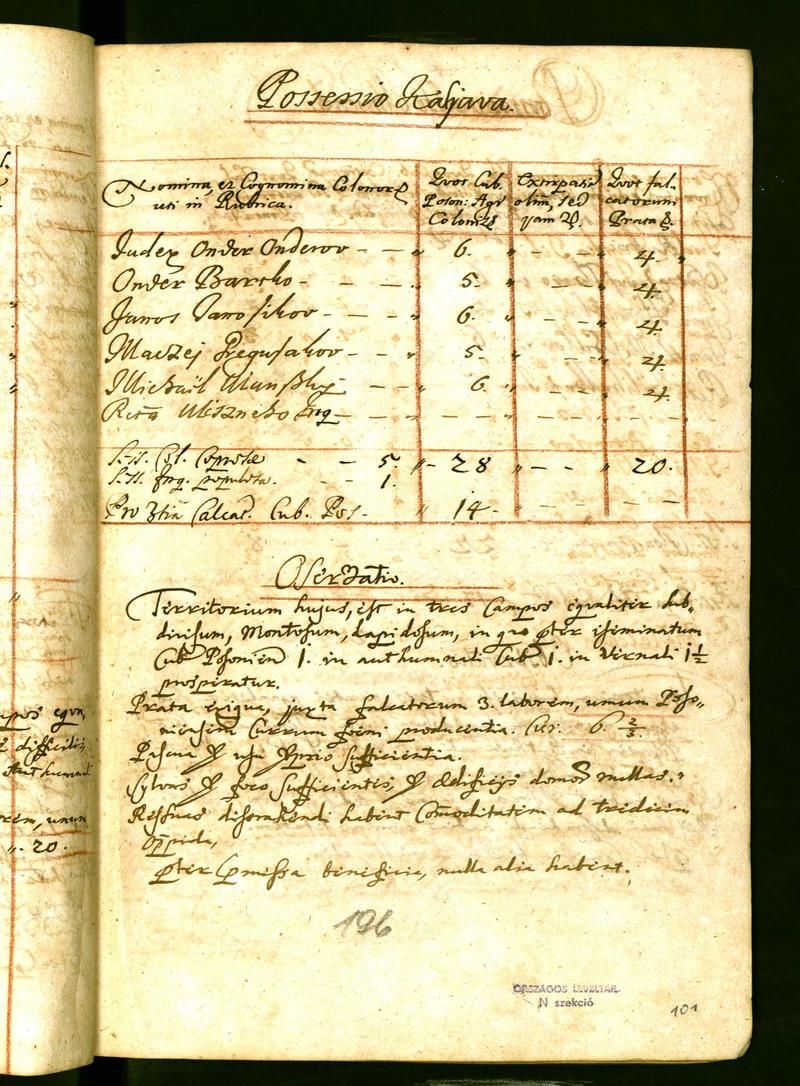 Possessio Kaljava.
Nomina, et Cognomina Colonor
uti in Rubrica.
Quot Cub.
Poson: Agr
Colonꝝ
Extirpatꝰ
olim, sed
jam
Quot fal-
catorum
Prata
Judex Onder Onderov - - " 6. " - - " 4. "
Onder Barsko - - - " 5. " - - " 4.
Janos Janosikov - - - " 6. " - - " 4.
Maczej Pregusakov - - " 5. " - - " 4.
Michail - - " 6. " - - " 4.
Miszneko Inq - - " - - " - - " - - "
S-s. Col. - - 5. " - 28 " - - " 20.
S-s. Inq. populata. - - 1.
Pro 3tia Calcat. Cub. Pos - " 14 - " - - " - -
Observatio.
Territorium hujus, est in tres Campos equaliter sub-
divisum, Montosum, Lapidosum, in quo pter iseminatum
Cub Posonien 1. in authumnali Cub 1. in Vernali 1½
prosperatur.
Prata exigua, juxta falcatorum 3. laborem, unum Poso-
niensem Currum foeni producentia. Cur. 6 2/3.
Pascua usu sufficientia.
Sylvas foco sufficientes, Edificijs domos nullas.
Ressuas distrahendi habent Comoditatem ad tredecim
oppida,
pter pmissa beneficia, nulla alia habent.
196
ORSZÁGOS LEVÉLTÁR
N szekció
101
equa
difficilis
orem, unum
". 20.